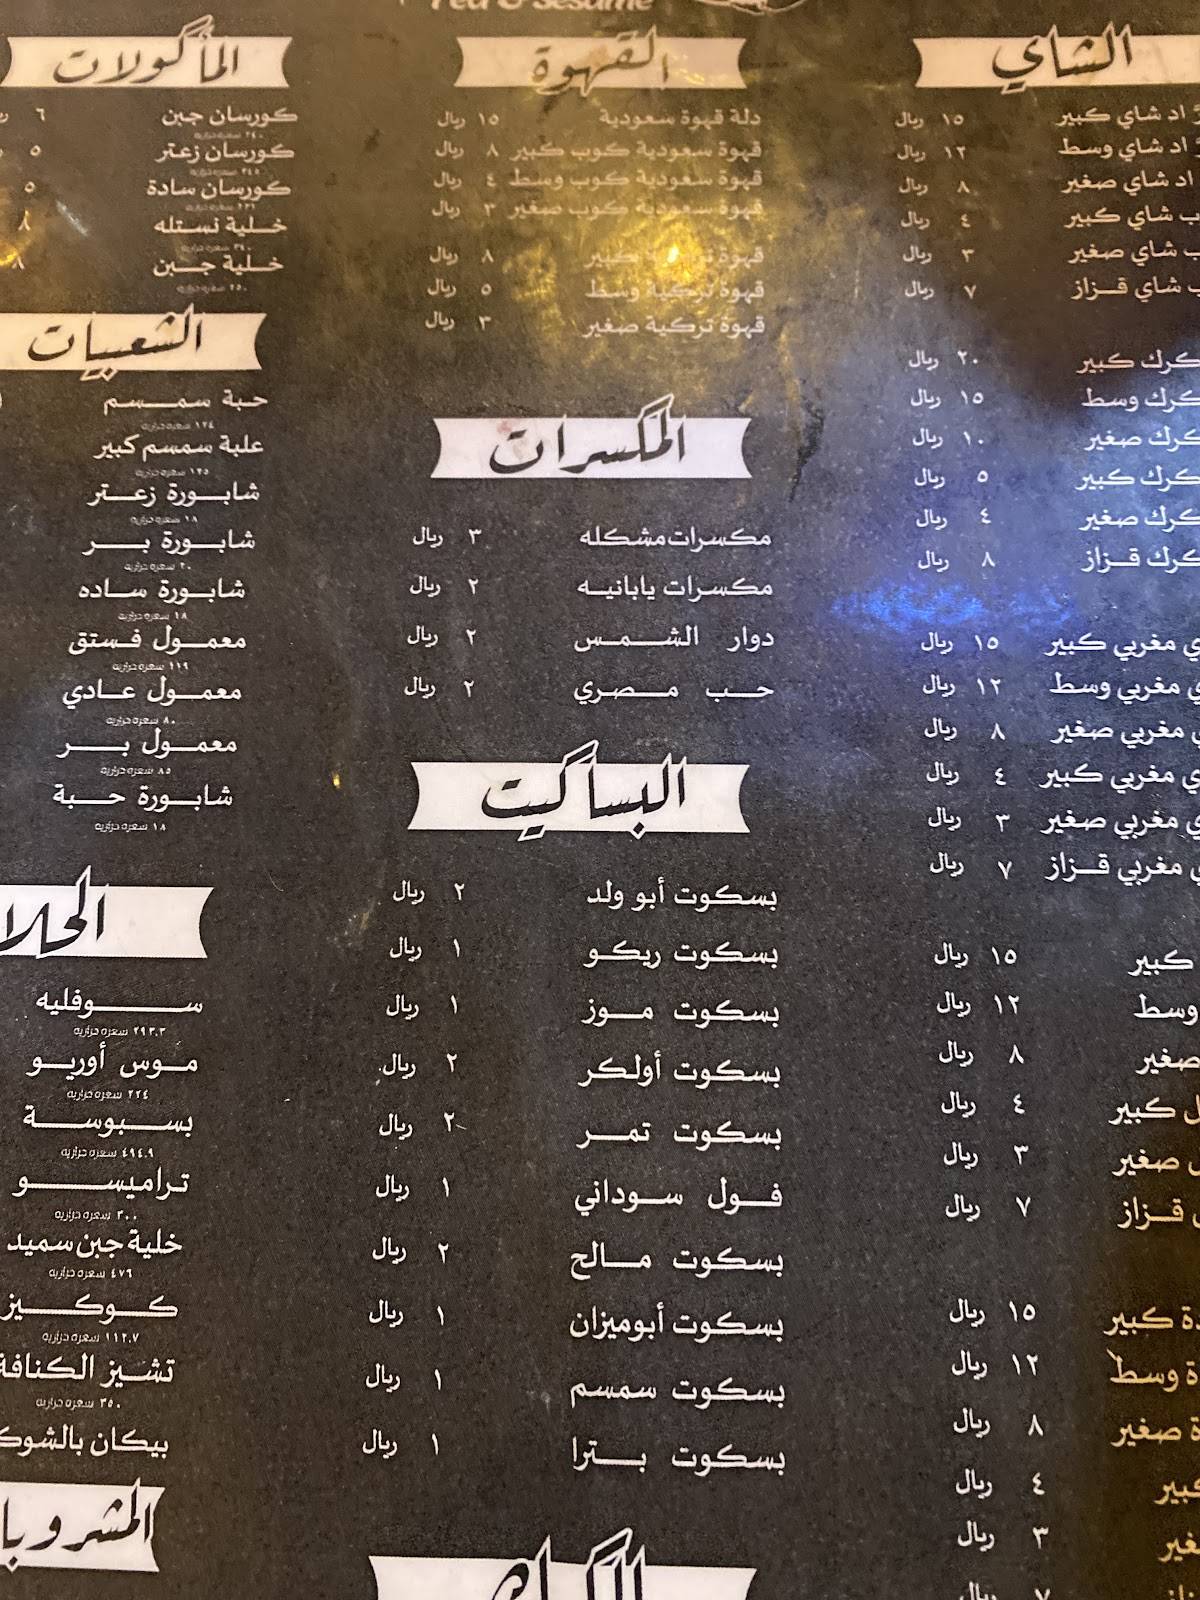 Tea & Sesame
الشاي
اد شاي كبير ١٥ ريال
اد شاي وسط ١٢ ريال
اد شاي صغير ٨ ريال
ب شاي كبير ٤ ريال
ب شاي صغير ٣ ريال
ب شاي قزاز ٧ ريال
كرك كبير ٢٠ ريال
كرك وسط ١٥ ريال
كرك صغير ١٠ ريال
كرك كبير ٥ ريال
كرك صغير ٤ ريال
كرك قزاز ٨ ريال
ي مغربي كبير ١٥ ريال
ي مغربي وسط ١٢ ريال
ي مغربي صغير ٨ ريال
ي مغربي كبير ٤ ريال
ي مغربي صغير ٣ ريال
ي مغربي قزاز ٧ ريال
كبير ١٥ ريال
وسط ١٢ ريال
صغير ٨ ريال
ل كبير ٤ ريال
صغير ٣ ريال
قزاز ٧ ريال
ة كبير ١٥ ريال
ة وسط ١٢ ريال
ة صغير ٨ ريال
كبير ٤ ريال
٣ ريال
٧ ريال
القهوة
دلة قهوة سعودية ١٥ ريال
قهوة سعودية كوب كبير ٨ ريال
قهوة سعودية كوب وسط ٤ ريال
قهوة سعودية كوب صغير ٣ ريال
قهوة تركية كبير ٨ ريال
قهوة تركية وسط ٥ ريال
قهوة تركية صغير ٣ ريال
المكسرات
مكسرات مشكله ٣ ريال
مكسرات يابانيه ٢ ريال
دوار الشمس ٢ ريال
حب مصري ٢ ريال
البساكيت
بسكوت أبو ولد ٢ ريال
بسكوت ريكو ١ ريال
بسكوت موز ١ ريال
بسكوت أولكر ٢ ريال
بسكوت تمر ٢ ريال
فول سوداني ١ ريال
بسكوت مالح ٢ ريال
بسكوت أبوميزان ١ ريال
بسكوت سمسم ١ ريال
بسكوت بترا ١ ريال
المأكولات
كورسان جبن ٦
٢٤٠ سعره حراريه
كورسان زعتر ٥
٢٤٥ سعره حراريه
كورسان سادة ٥
٢٣١ سعره حراريه
خلية نستله ٨
٣٤٠ سعره حراريه
خلية جبن ٨
٢٥٠ سعره حراريه
الشعبيات
حبة سمسم
١٢٤ سعره حراريه
علبة سمسم كبير
١٢٥ سعره حراريه
شابورة زعتر
١٨ سعره حراريه
شابورة بر
٢٠ سعره حراريه
شابورة ساده
١٨ سعره حراريه
معمول فستق
١١٩ سعره حراريه
معمول عادي
٨٠ سعره حراريه
معمول بر
٨٥ سعره حراريه
شابورة حبة
١٨ سعره حراريه
الحلا
سوفليه
٢٩٣.٣ سعره حراريه
موس أوريو
٢٢٤ سعره حراريه
بسبوسة
٤٩٤.٩ سعره حراريه
تراميسو
٣٠٠ سعره حراريه
خلية جبن سميد
٤٧٦ سعره حراريه
كوكيز
١١٢.٧ سعره حراريه
تشيز الكنافة
٣٥٠ سعره حراريه
بيكان بالشوك
المشروبا